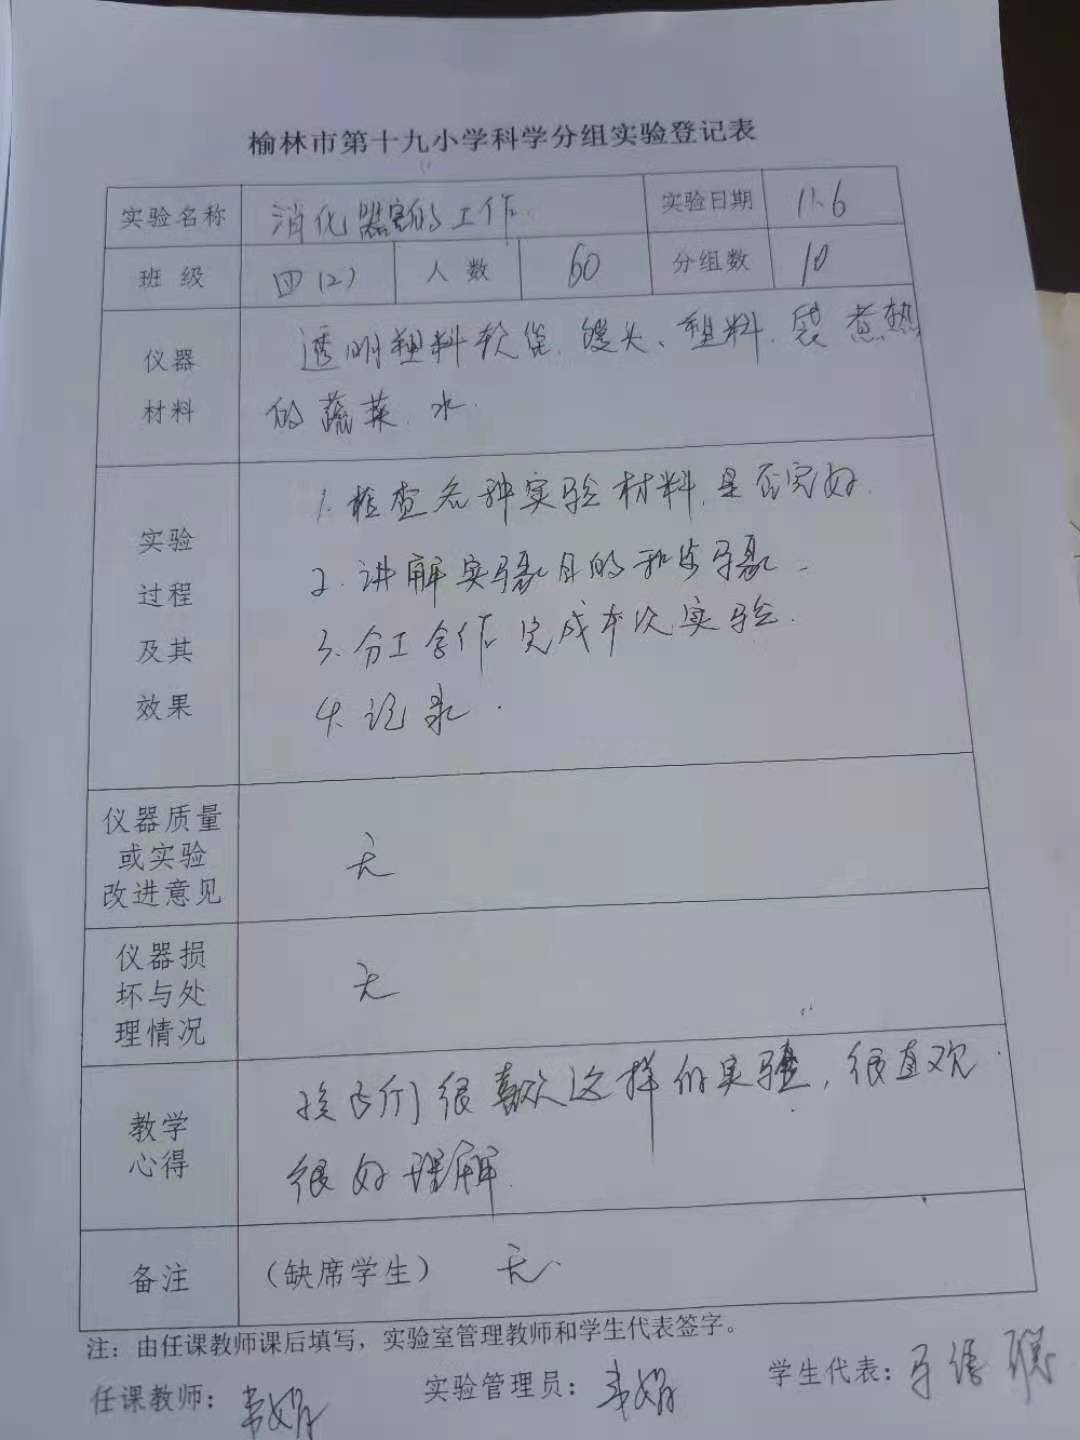 榆林市第十九小学科学分组实验登记表
实验名称 消化器官的工作 实验日期 11.6
班 级 四(2) 人 数 60 分组数 10
仪器
材料
透明塑料软管、馒头、塑料袋 煮熟
的蔬菜、水.
实验
过程
及其
效果
1.检查各种实验材料是否完好.
2.讲解实验目的和步骤.
3.分工合作完成本次实验.
4.记录.
仪器质量
或实验
改进意见
无
仪器损
坏与处
理情况
无
教学
心得
孩子们很喜欢这样的实验,很直观.
很好理解.
备注 (缺席学生) 无.
注：由任课教师课后填写，实验室管理教师和学生代表签字。
任课教师： 实验管理员： 学生代表：